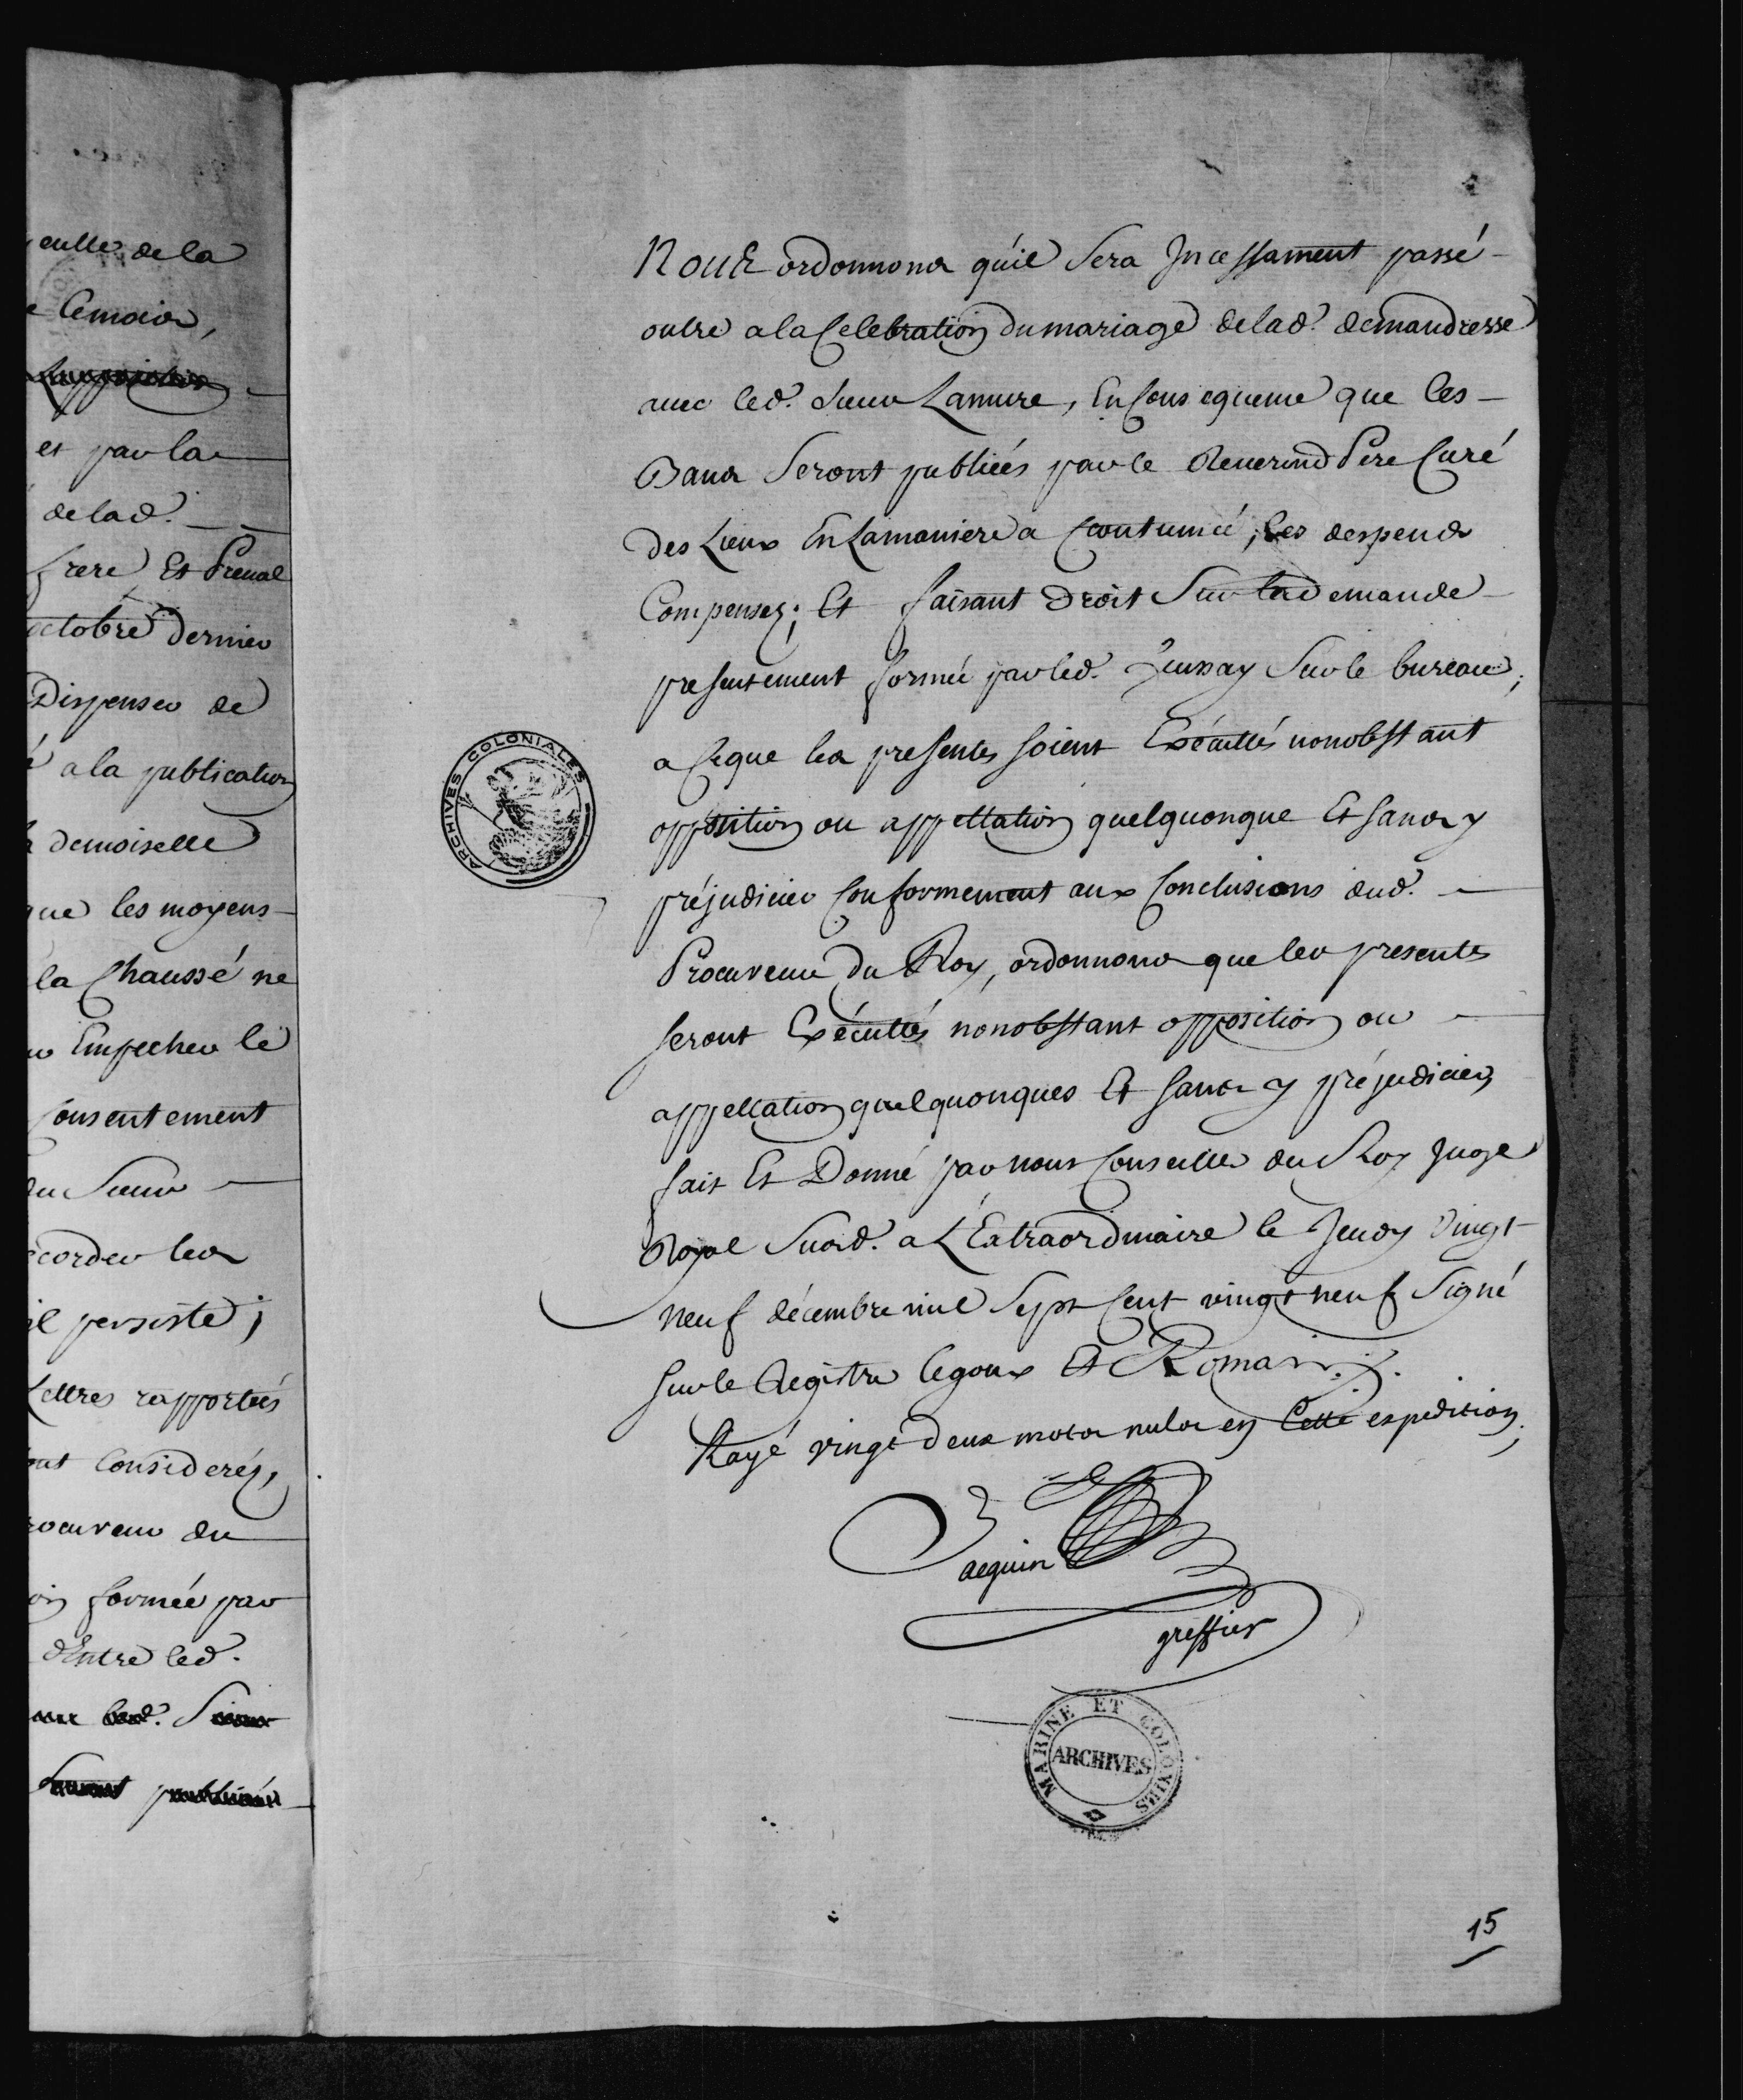 eulle de la
e Lemoin,
et par la
de lad.
frere Et Preual
octobre dernier
Dispenser de
é a la publication
demoiselle
que les moyens
la Chaussé ne
Empecher le
Consentement
du Sieur
accorder les
il persiste;
Lettres rapportées
tout Considerés,
rocureur du
on formée par
d'Entre led.
aux led. Sieur
Seront publiées
Nous ordonnons qu'il Sera Incessament passé
outre a la Celebration du mariage de lad. demandresse
avec led. Sieur Lamure, En Consequence que les
Bans Seront publiées par le Reverend Pere Curé
des Lieux En La maniere a Ccoutumée, Les despends
Compensez; Et faisant Droit Sur la Demande
presentement formée par led. Jussay Sur le bureau;
a Ceque les presentes soient Exécuttés nonobstant
opposition ou appellation quelquonque Et sans y
préjudicier Conformement aux Conclusions dud.
Procureur du Roy, ordonnons que les presentes
seront Exécuttés nonobstant opposition ou
appellation quelquonques Et sans y préjudicier,
fait Et Donné par nous Conseiller du Roy Juge
Royal Susd. a L'Extraordinaire le Jeudy Vingt
neuf décembre mil Sept Cent vingt neuf Signé
sur le Registre Legoux Et Romain.
Rayé vingt deux mots nuls en Cette expedition;
Jacquin
greffier
ARCHIVES COLONIALES
MARINE ET COLONIES
ARCHIVES
15